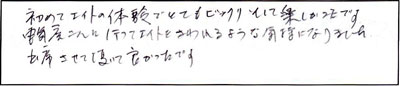 初めてエイトの体験でとてもビックリして楽しかったです
さんに行ってエイトとさわれるような気持になりました
出席させて頂いて良かったです